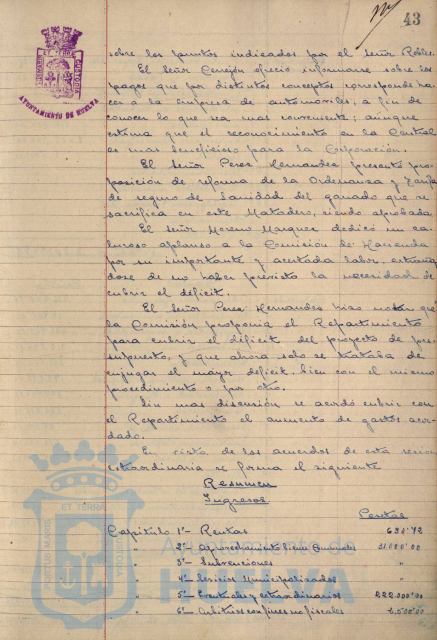 43
AYUNTAMIENTO DE HUELVA
sobre los puntos indicados por el señor Robles.
El Señor Cerejón ofreció informarse sobre los
pagos que por distintos conceptos corresponde ha-
cer a la empresa de automoviles, a fin de
conocer lo que sea mas conveniente; aunque
estima que el reconocimiento en la Central
es mas beneficioso para la Corporación.
El Señor Perez Hernandez presentó pro-
posición de reforma de la Ordenanza y Tarifa
de seguro de Sanidad del ganado que se
sacrifica en este Matadero, siendo aprobada.
El señor Moreno Marquez dedicó un ca-
luroso aplauso a la Comisión de Hacienda
por su importante y acertada labor, extrañan-
dose de no haber previsto la necesidad de
cubrir el déficit.
El Señor Perez Hernandez hizo notar que
la Comisión proponia el Repartimiento
para cubrir el déficit del proyecto de pre-
supuesto, y que ahora solo se trataba de
enjugar el mayor deficit, bien con el mismo
procedimiento o por otro.
Sin mas discusión se acordó cubrir con
el Repartimiento el aumento de gastos acor-
dado.
En vista de los acuerdos de esta sesion
extraordinaria se forma el siguiente
Resumen
Ingresos
Pesetas
Capitulo 1º- Rentas 634'72
" 2º- Aprovechamiento bienes Comunales 31.000'00
" 3º- Subvenciones "
" 4º- Servicios Municipalizados "
" 5º- Eventuales y extraordinarios 222.000'00
" 6º- Arbitrios con fines no fiscales
Ayuntamiento de
HUELVA